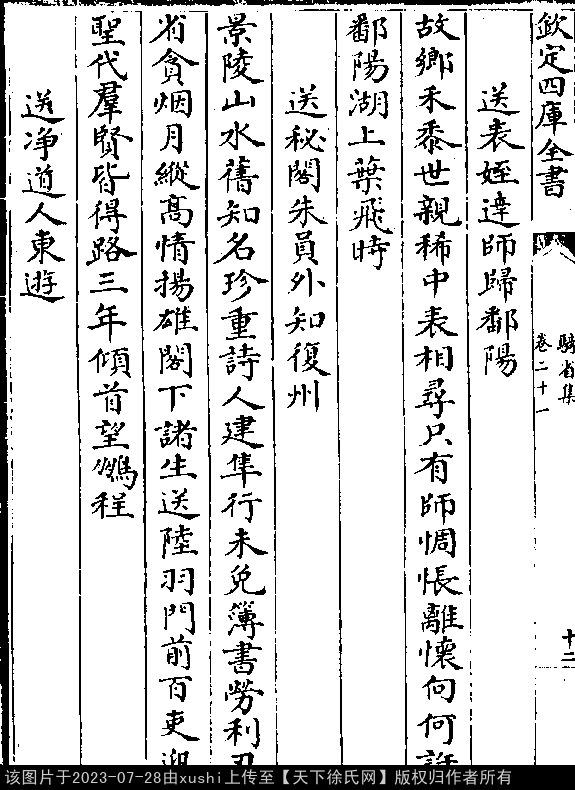 欽定四庫全書
騎省集
卷二十一
十二
送表姪達師歸鄱陽
故鄉禾黍世親稀中表相尋只有師惆悵離懷向何
鄱陽湖上葉飛時
送秘閣朱員外知復州
景陵山水舊知名珍重詩人建隼行未免簿書勞利
省貪烟月縱髙情揚雄閣下諸生送陸羽門前百吏迎
聖代羣賢皆得路三年傾首望鵷程
送净道人東遊
该图片于2023-07-28由xushi上传至【天下徐氏网】版权归作者所有